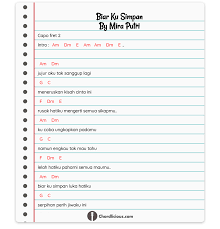 Biar Ku Simpan
By Mira Putri
Capo fret 2
Intro : Am Dm E Am Am Dm E ..
Am Dm
jujur aku tak sanggup lagi
G C
meneruskan kisah cinta ini
F Dm E
rusak hatiku mengerti semua sikapmu,
Am Dm
ku coba ungkapkan padamu
G C
namun engkau tak mau tahu
F Dm E
lelah hatiku pahami semua maumu..
Am Dm
biar ku simpan luka hatiku
G C
serpihan perih jiwaku ini
Chordlicious.com